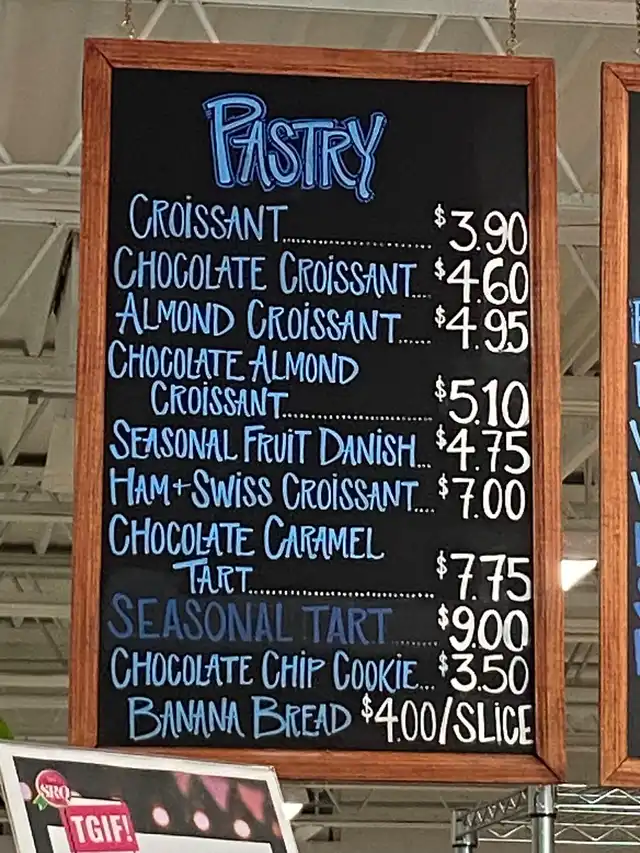 PASTRY
CROISSANT $3.90
CHOCOLATE CROISSANT $4.60
ALMOND CROISSANT $4.95
CHOCOLATE ALMOND
CROISSANT $5.10
SEASONAL FRUIT DANISH $4.75
HAM+SWISS CROISSANT $7.00
CHOCOLATE CARAMEL
TART $7.75
SEASONAL TART $9.00
CHOCOLATE CHIP COOKIE $3.50
BANANA BREAD $4.00/SLICE
SRQ
TGIF!